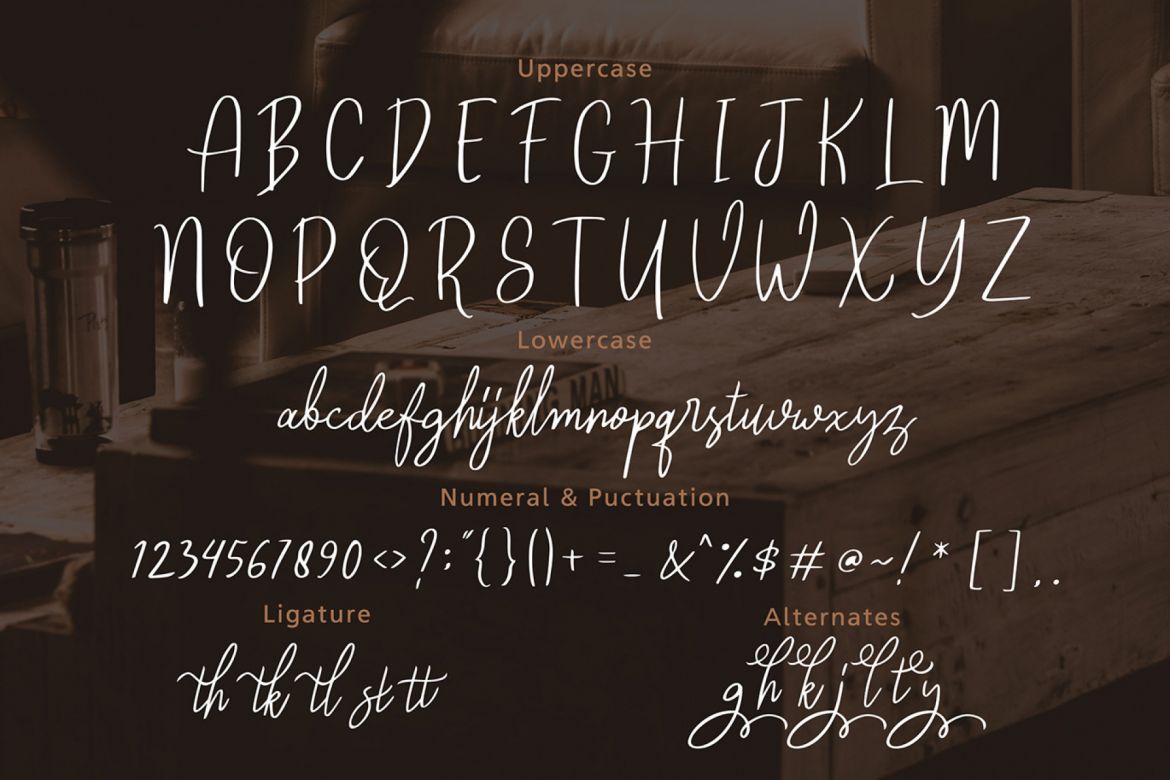 Uppercase
ABCDEFGHIJKLM
NOPQRSTUVWXYZ
Lowercase
abcdefghijklmnopqrstuvwxyz
MAN
Numeral & Puctuation
1234567890<>?:"{}()+=_&^%$#@~!*[],.
Ligature
th tk tl st tt
Alternates
g h k j l t y